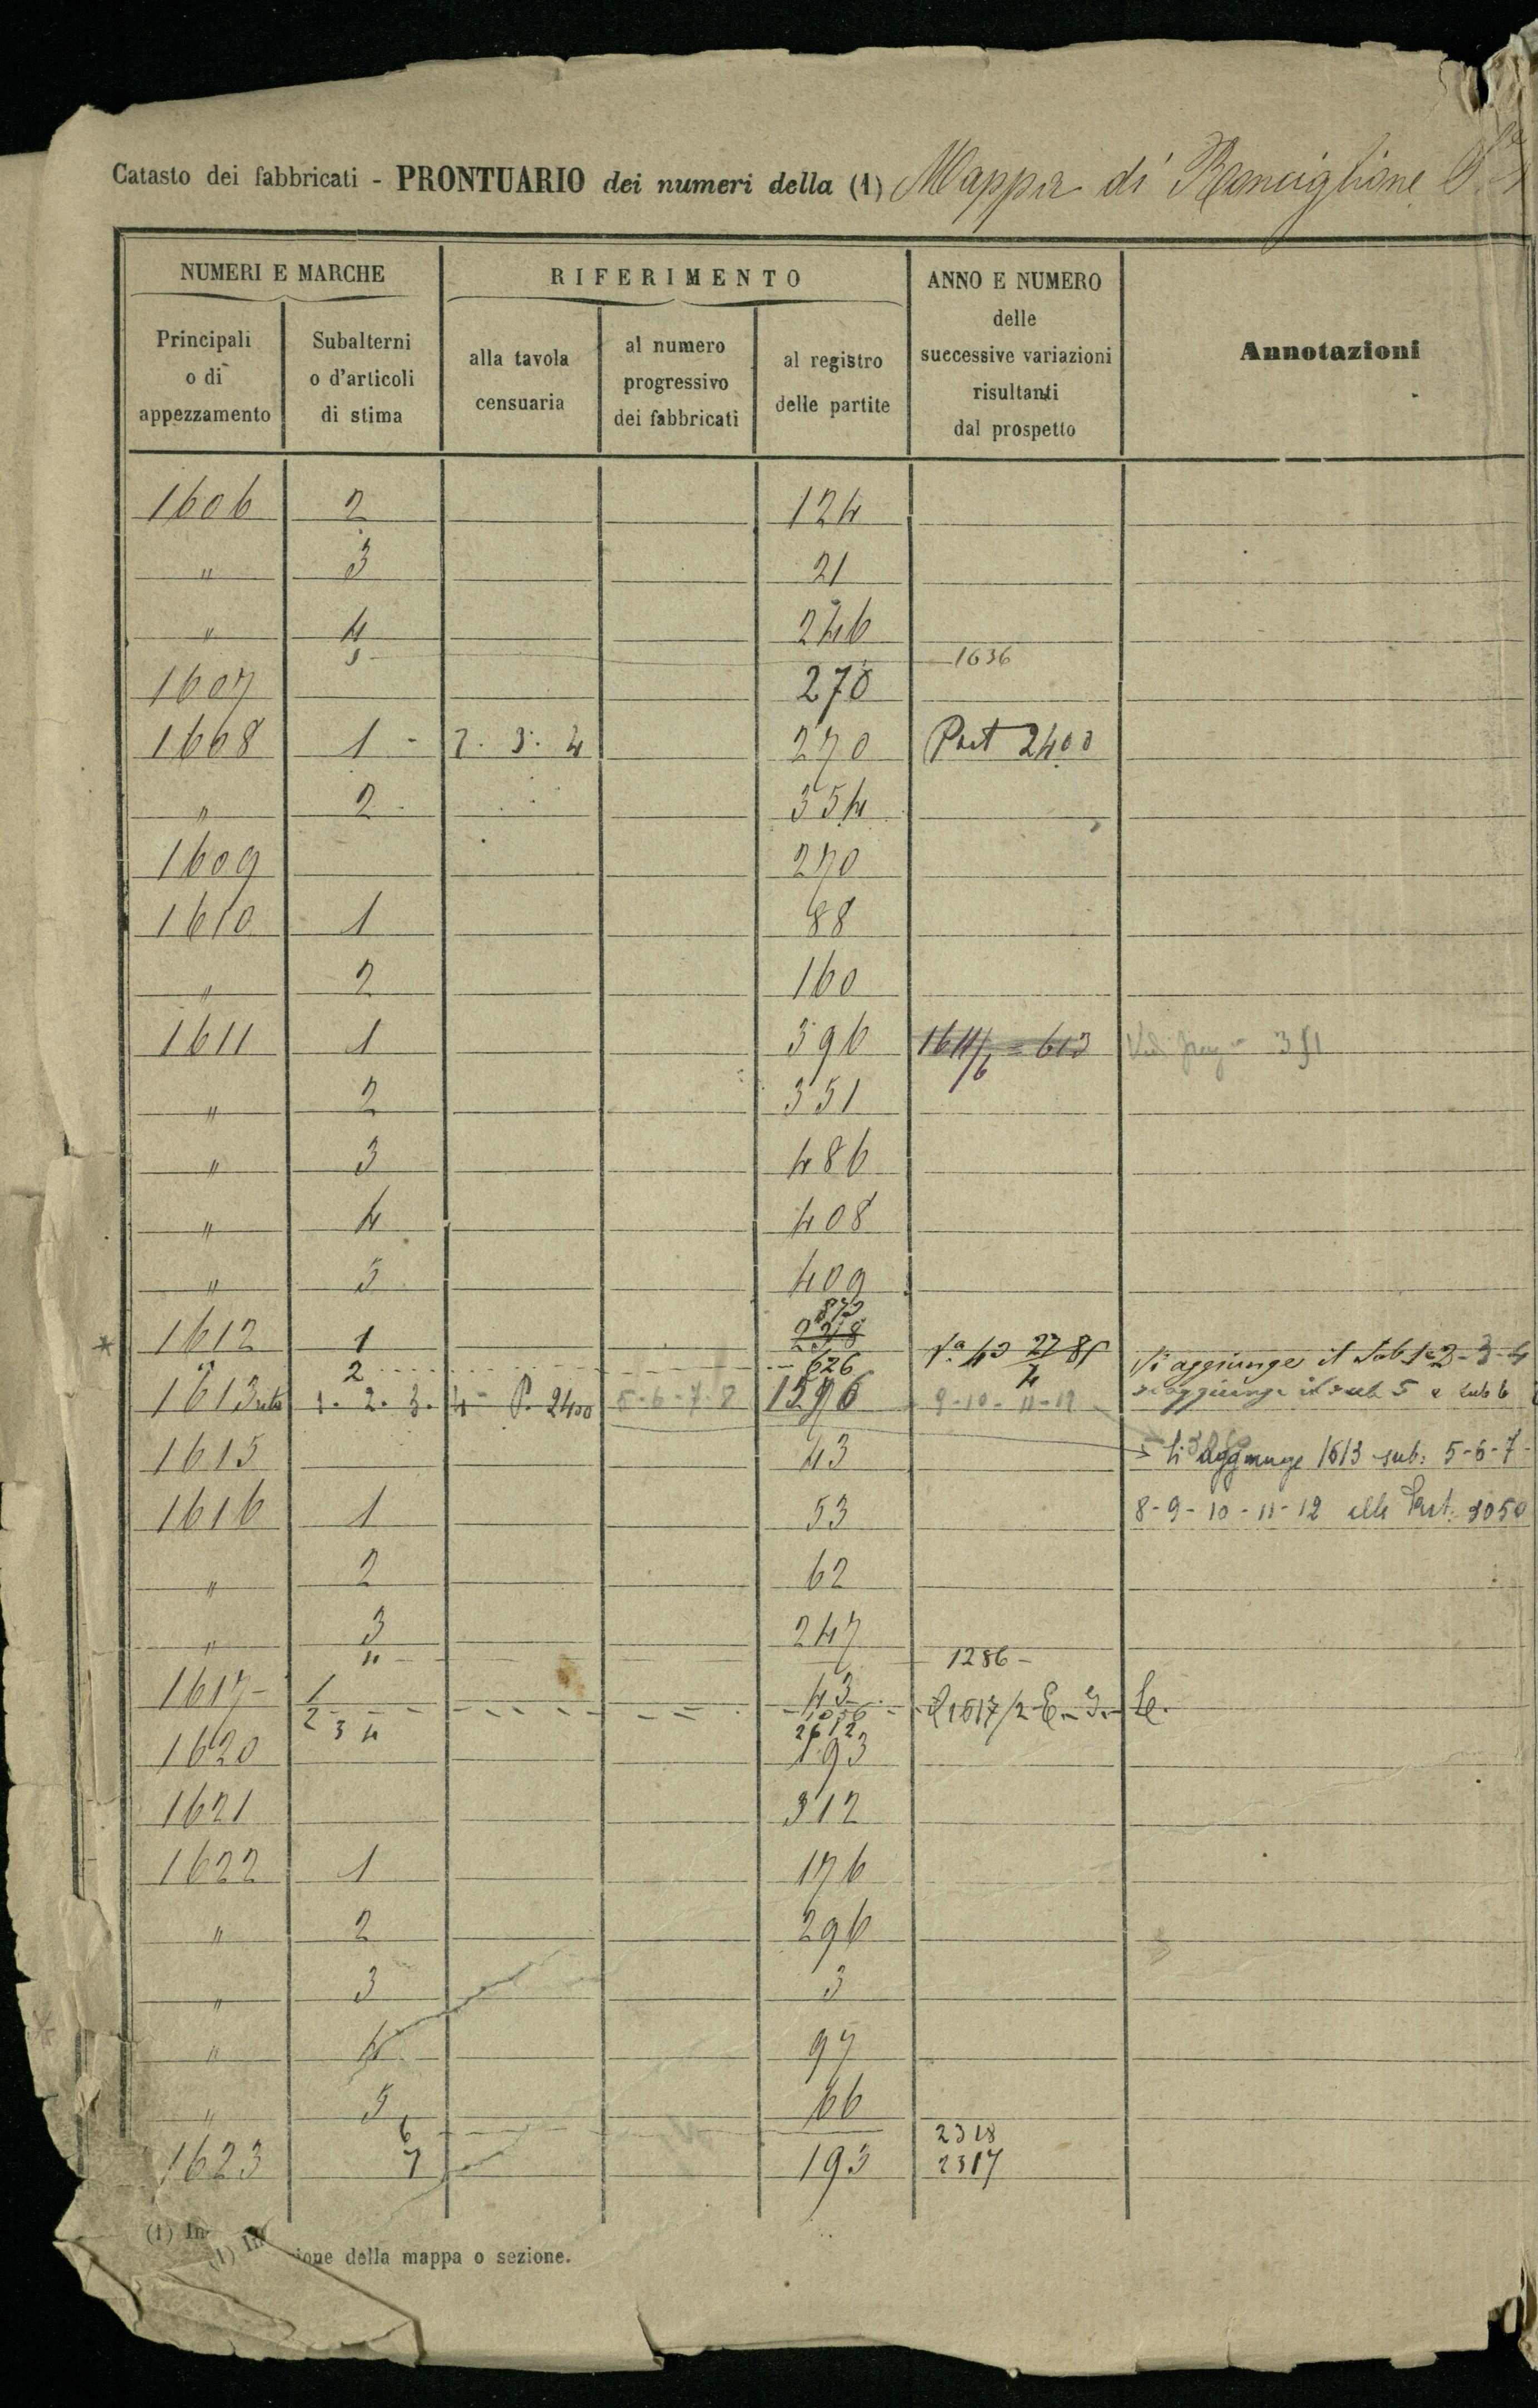 Catasto dei fabbricati - PRONTUARIO dei numeri della (1) Mappa di Ronciglione
NUMERI E MARCHE
RIFERIMENTO
ANNO E NUMERO
delle
successive variazioni
risultanti
dal prospetto
Annotazioni
Principali
o di
appezzamento
Subalterni
o d'articoli
di stima
alla tavola
censuaria
al numero
progressivo
dei fabbricati
al registro
delle partite
1606 2 124
" 3 21
" 4 246
5 1636
1607 270
1608 1 - 2. 3. 4 270 Part 2400
" 2 354
1609 270
1610 1 88
" 2 160
1611 1 396 1611/6 = 613 351
" 2 351
" 3 486
" 4 408
" 5 409
873
1612 1 238 Si aggiunge il sub 1-2-3-4
" 2 626
1613 1. 2. 3. 4 - P. 2400 5-6-7-8 1376 9-10-11-12 si aggiunge il sub 5 e sub 6
1615 43 Si aggiunge 1613 sub: 5-6-7-
1616 1 53 8-9-10-11-12 alla Part. 3050
" 2 62
" 3 247
4 1286 -
1617 - 1 43
2 1056 1617/2
3 4 2612
1620 193
1621 312
1622 1 176
" 2 296
" 3 3
" 4 97
" 5 66
6 2318
1623 7 193 2317
(1) In
(1) In
ione della mappa o sezione.